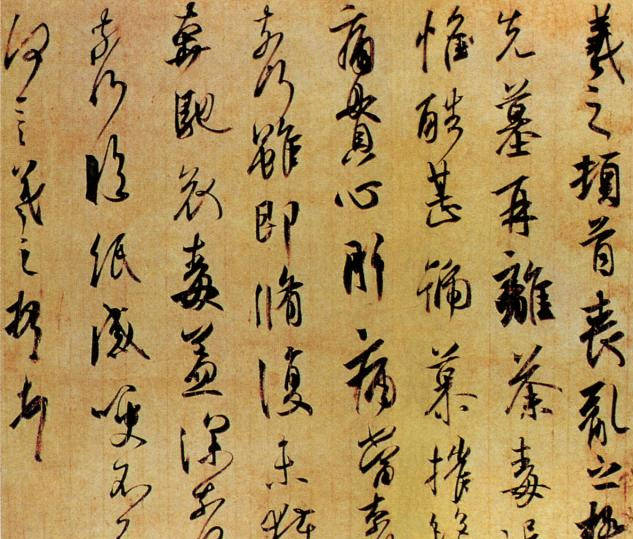 羲之頓首喪亂之極
先墓再離荼毒追
惟酷甚號慕摧絶
痛貫心肝痛當奈
奈何雖即脩復未獲
奔馳哀毒益深奈何
奈何臨紙感哽不
何言羲之頓首